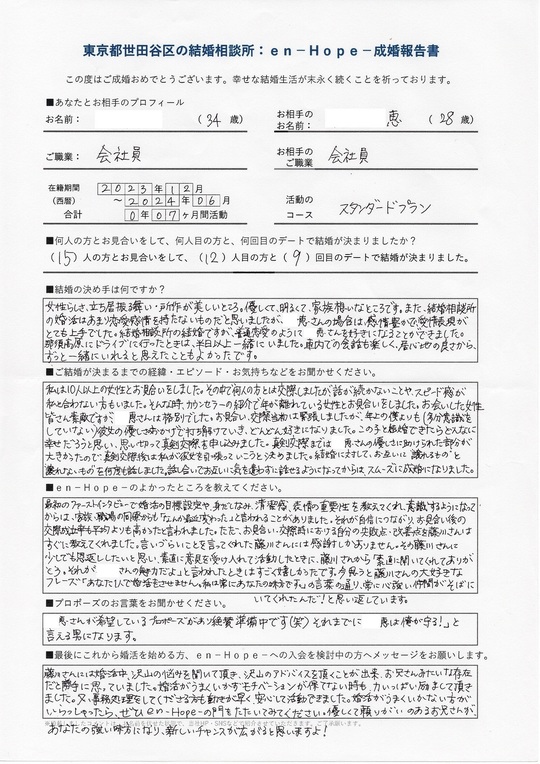 東京都世田谷区の結婚相談所：en－Hope－成婚報告書
この度はご成婚おめでとうございます。幸せな結婚生活が末永く続くことを祈っております。
■あなたとお相手のプロフィール
お名前： （34 歳） お相手のお名前： 恵 （28 歳）
ご職業： 会社員 お相手のご職業 会社員
在籍期間（西暦） 2023年12月
～2024年06月
合計 0年07ヶ月間活動
活動のコース スタンダードプラン
■何人の方とお見合いをして、何人目の方と、何回目のデートで結婚が決まりましたか？
（15）人の方とお見合いをして、（12）人目の方と（9）回目のデートで結婚が決まりました。
■結婚の決め手は何ですか？
女性らしさ、立ち居振る舞い・所作が美しいところ。優しくて、明るくて、家族想いなところです。また、結婚相談所
の婚活はあまり恋愛感情を持たないものだと思いましたが、 恵さんの場合は、感情豊かで、愛情表現が
とても上手でした。結婚相談所の結婚ですが、普通恋愛のように 恵さんを好きになることができました。
那須高原にドライブに行ったときは、半日以上一緒にいました。車内での会話も楽しく、居心地の良さから、
ずっと一緒にいれると思えたこともよかったです。
■ご結婚が決まるまでの経緯・エピソード・お気持ちなどをお聞かせください。
私は10人以上の女性とお見合いをしました。その中で何人の方とは交際しましたが話が続かないことや、スピード感が
私と合わない方もいました。そんな時、カウンセラーの紹介で年が離れている女性とお見合いをしました。お会いした女性
皆さん素敵ですが、 恵さんは格別でした。お見合い、交際当初は緊張しましたが、年上の僕よりも（多分意識を
していない）彼女の優しさのおかげで打ち解けていき、どんどん好きになりました。この子と結婚できたらどんなに
幸せだろうと思い、思い切って真剣交際を申し込みました。真剣交際までは 恵さんの優しさに助けられた部分が
大きかったので、真剣交際後は私が彼女を引っ張っていこうと決めました。結婚に対してお互いに"譲れるもの"と
譲れないもの"を何度も話しました。話し合いでお互いに気を遣わずに話せるようになってからは、スムーズに成婚になりました。
■en－Hopeのよかったところを教えてください。
最初のファーストインタビューで婚活の目標設定や、身だしなみ、清潔感、表情の重要性を教えてくれ、意識するようになって
からは、家族、職場の同僚からも「なんか最近変わった」と言われることがありました。それが自信につながり、お見合い後の
交際成立率も平均よりも高かったと言われました。ただ、お見合い、交際時における自分の失敗点・改善点を藤川さんは
すぐに教えてくれました。言いづらいことを言ってくれた藤川さんには感謝しかありません。その藤川さんに
少しでも恩返ししたいと思い、素直に意見を受け入れて活動したときに、藤川さんから「素直に聞いてくれてありが
とう。それが さんの魅力だよ」と言われたときはすごく嬉しかったです。今思うと藤川さんの大好きな
フレーズ「あなたひとりで婚活させません。私は常にあなたの味方です。」の言葉の通り、常に心強い仲間がそばに
いてくれたんだ！と思い返しています。
■プロポーズのお言葉をお聞かせください。
恵さんが希望しているプロポーズがあり絶賛準備中です（笑）それまでに「 恵は俺が守る！」と
言える男になります。
■最後にこれから婚活を始める方、en－Hopeへの入会を検討中の方へメッセージをお願いします。
藤川さんには婚活中、沢山の悩みを聞いて頂き、沢山のアドバイスを頂くことが出来、お兄さんみたいな存在
だと勝手に思っていました。婚活がうまくいかずモチベーションが保てない時も、力いっぱい励まして頂き
ました。又、事務処理をしてくださる方も動きが早く、安心して活動できました。婚活がうまくいかない方が
いらっしゃったら、ぜひen-Hopeの門をたたいてみてください。優しくて頼りがいのあるお兄さんが、
あなたの強い味方になり、新しいチャンスが広がると思いますよ！